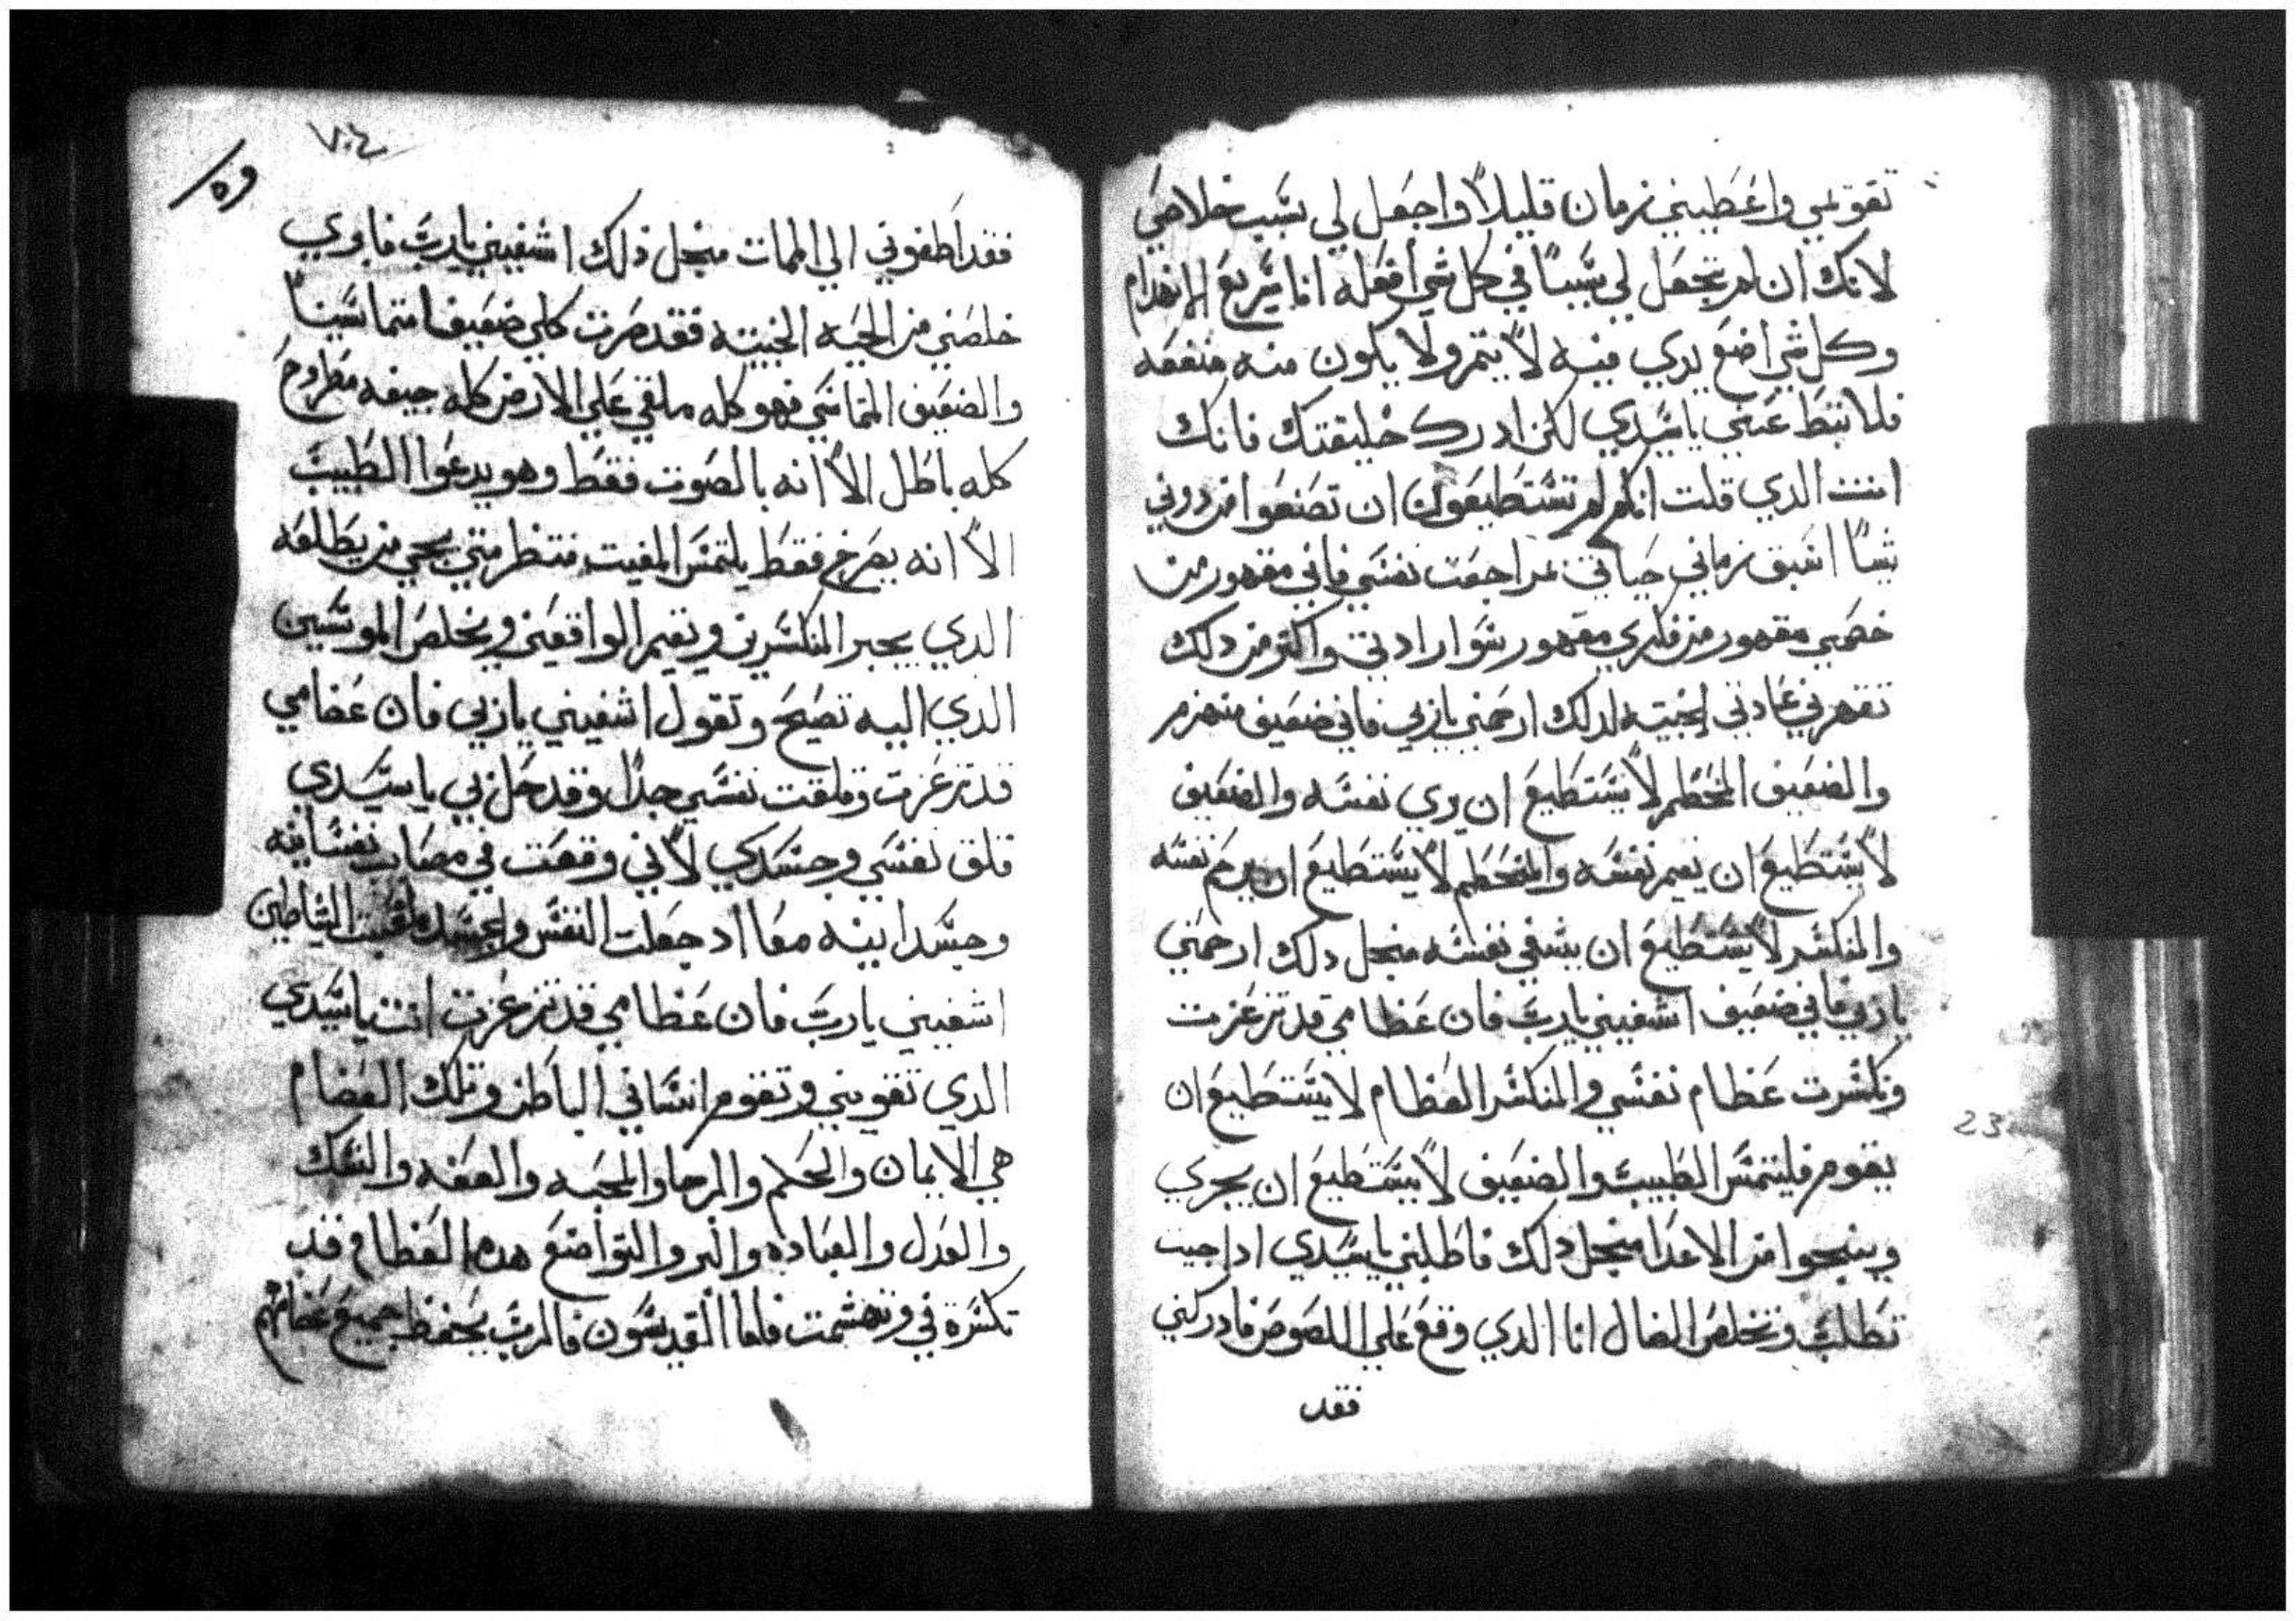 تقوتمي واعَطيني زمان قليلاً واجعَل لي سَبب خلاصَي
لانك ان لم تجعَل لي سَببًا في كل شي افعَله انا سَريع الانهدام
وكل شي اضع يدي فيه لا يتم ولا يكون منه منفعَه
فلا تبتط عَني يا سَيدي لكن ادرك خليقتك فانك
انت الدي قلت انكم لم تسَتطيعَون ان تصَنعَوا من دوني
شيًا اسَبق زماني حَياتي مراجعَت نفسَي فاني مقهور من
خصَمي مقهور من فكري مقهور سَوا رادتي واكتر من دلك
تقهرني عَادتي الخبيته لدلك ارحَمني يا ربي فاني ضعَيف منهزم
والضعَيف المحَطم لا يسَتطيعَ ان يري نفسَه والضعَيف
لا يسَتطيعَ ان يقيم نفسَه والمتحَطم لا يسَتطيعَ ان يرحَم نفسَه
والمنكسَر لا يسَتطيعَ ان يشفي نفسَه منجل دلك ارحَمني
يا ربي فاني ضعَيف اشفيني يا ربَ فان عَظامي قد تزعَزعت
وتكسَرت عَظام نفسَي والمنكسَر العَظام لا يسَتطيعَ ان
يقوم فليلتمسَ الطبيبَ والضعَيف لا يسَتطيعَ ان يجري
وينجوا من الاعَدا منجل دلك فاطلبني يا سَيدي ادا جيت
تطلبَ وتخلصَ الضال انا الدي وقعَ عَلي اللصَوصَ فادركني
فقد
٧٠٤
٥٩
فقد اطفوني الي الممات منجل ذلك اشفيني يا ربَ فا وي
خلصَني من الحَيه الخبيته فقد صَرت كلي ضعَيف متماسَينًا
والضعَيف المتماسَي فهو كله ملقي عَلي الارض كله جيفه مطروحَ
كله باطل الا انه بالصَوت فقط وهو يدعَوا الطبيبَ
الا انه يصَرخ فقط يلتمسَ المغيت منتظر متي يجي من يطلعَه
الدي يجبر المنكسَرين ويقيم الواقعَين ويخلصَ الموسَين
الدي اليه تصَيحَ وتقول اشفيني يا ربي فان عَضامي
قد تزعَزعت وقلقت نفسَي جدًا وقد حَل بي يا سَيدي
قلق نفسَي وجسَدي لاني وقعَت في مصَاب نفسَانيه
وجسَدانيه معَا اد جعَلت النفسَ والجسَد الشياطين
اشفيني يا ربَ فان عَظامي قد تزعَزعت انت يا سَيدي
الدي تقويني وتقوم انسَاني الباطن وتلك العَضام
هي الايمان والحَلم والرجا والمحَبه والعَفه والنسَك
والعَدل والعَباده والبر والتواضعَ هده العَظام قد
تكسَرة في وتهشمت فاما القديسَون فالربَ يحَفظ جميعَ عَضامهم
23